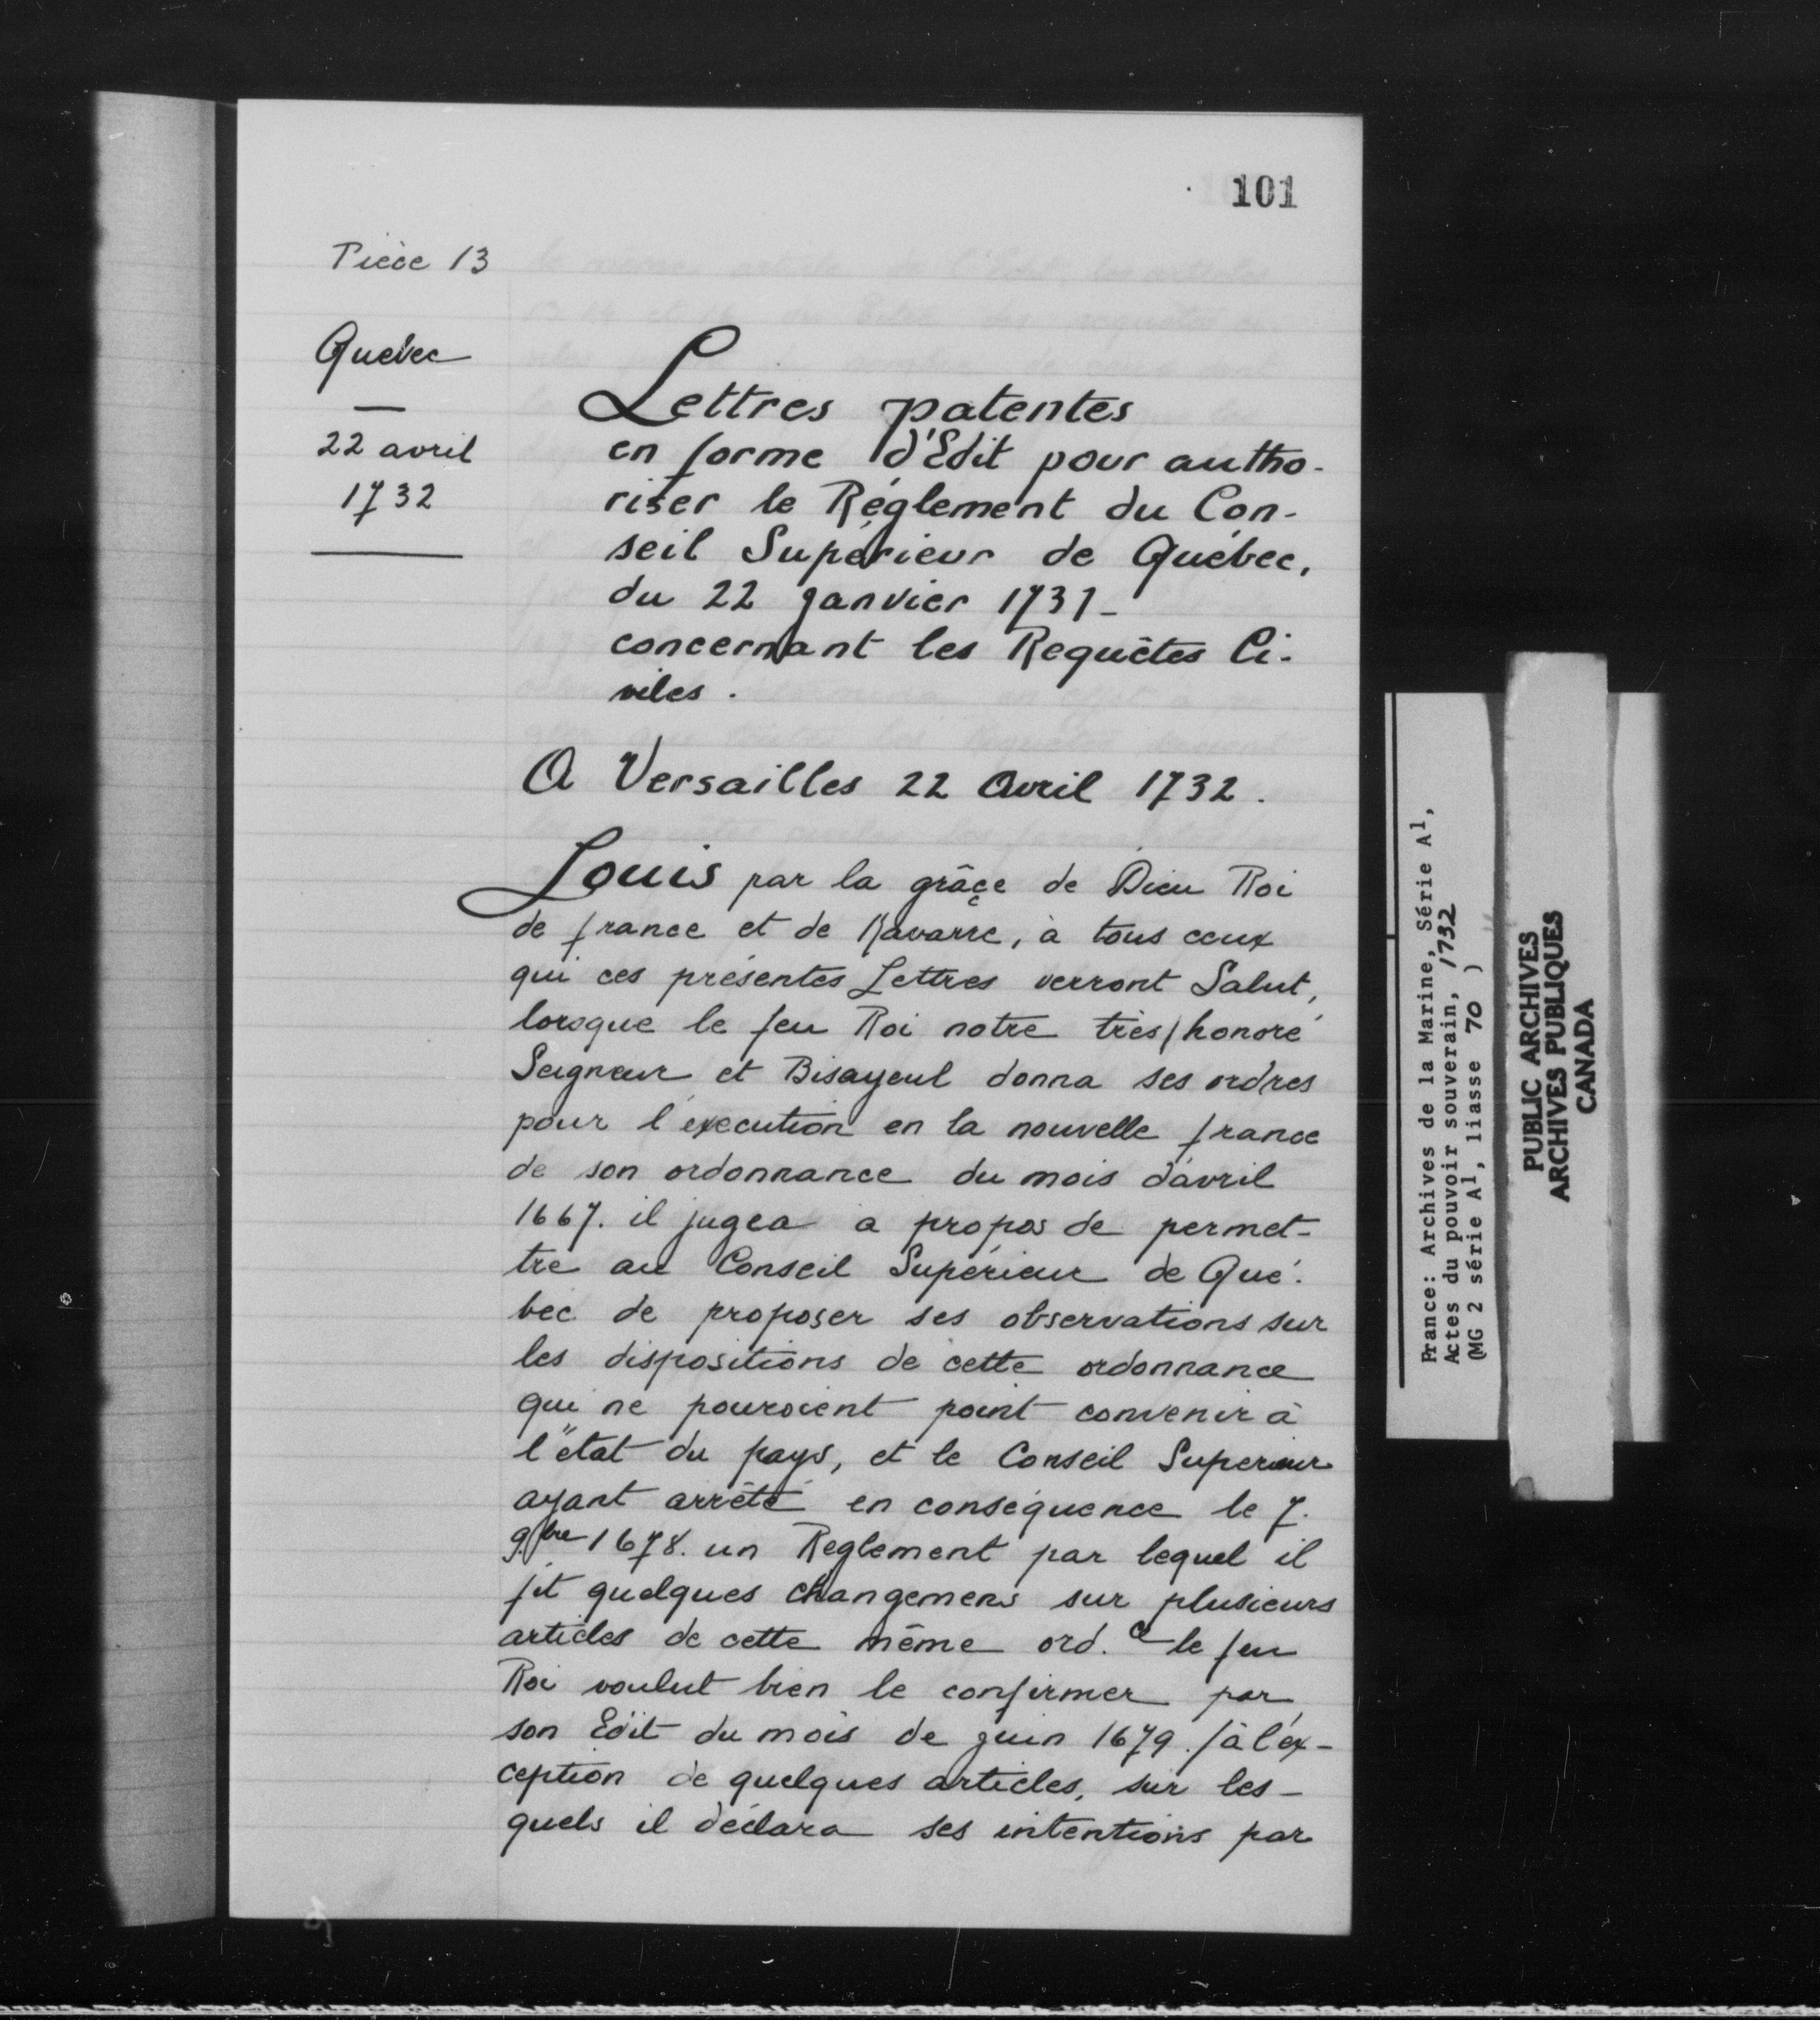 101
Pièce 13
Quebec
22 avril
1732
Lettres patentes
en forme d'Edit pour autho-
riser le Réglement du Con-
seil Supérieur de Québec,
du 22 Janvier 1731-
concernant les Requêtes Ci-
viles.
A Versailles 22 Avril 1732.
Louis par la grâçe de Dieu Roi
de france et de Navarre, à tous ceux
qui ces présentes Lettres verront Salut,
lorsque le feu Roi notre très/honoré
Seigneur et Bisayeul donna ses ordres
pour l'éxecution en la nouvelle france
de son ordonnance du mois d'avril
1667. il jugea a propos de permet-
tre au Conseil Supérieur de Qué-
bec de proposer ses observations sur
les dispositions de cette ordonnance
qui ne pouroient point convenir à
l'état du pays, et le Conseil Superieur
ayant arrêté en conséquence le 7.
9.bre 1678. un Reglement par lequel il
fit quelques changemens sur plusieurs
articles de cette même ord.ce le feu
Roi voulut bien le confirmer par
son Edit du mois de juin 1679. /à l'éx-
ception de quelques articles, sur les-
quels il déclara ses intentions par
France: Archives de la Marine, Série A1,
Actes du pouvoir souverain, 1732
(MG 2 série A1, liasse 70 )
PUBLIC ARCHIVES
ARCHIVES PUBLIQUES
CANADA